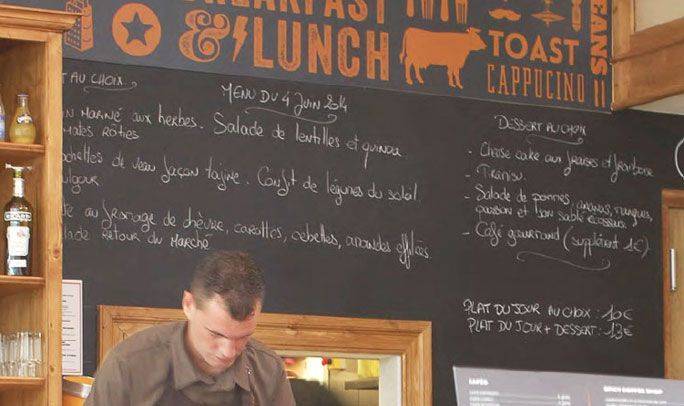 BREAKFAST
& LUNCH
TOAST
CAPPUCINO
BEANS
AU CHOIX
MENU DU 4 JUIN 2014
MARINÉ AUX HERBES. SALADE DE LENTILLES ET QUINOA
RÔTIES
DE VEAU FAÇON TAJINE. CONFIT DE LÉGUMES DU SOLEIL
AU FROMAGE DE CHÈVRE, CAROTTES, CEBETTES, AMANDES EFFILÉES
RETOUR DU MARCHÉ
DESSERT AU CHOIX
- Cheese cake aux fraises et framboise
- Tiramisu
- Salade de pommes, ananas, mangues,
passion et son sablé écossais
- Café gourmand (supplément 1€)
PLAT DU JOUR AU CHOIX : 10€
PLAT DU JOUR + DESSERT : 13€
RICARD
CAFÉS